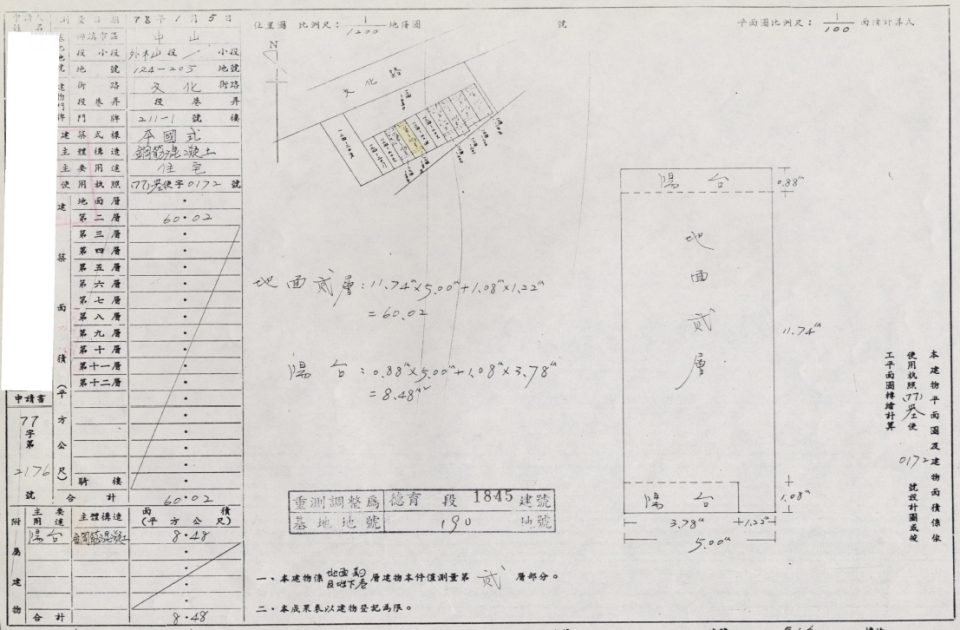 測量日期 78年1月5日
位置圖 比例尺：1/1200 地籍圖 號
平面圖比例尺：1/100
中山
段小段 外木山段一小段
地號 124-203 地號
街路 文化 街路
段巷弄 段巷弄
門牌 211-1 號 樓
建築式樣 本國式
主體構造 鋼筋混凝土
主要用途 住宅
使用執照 (77)基使字0172號
建築面積(平方公尺)
地面層
第二層 60.02
第三層
第四層
第五層
第六層
第七層
第八層
第九層
第十層
第十一層
第十二層
騎樓
合計 60.02
申請書
77
字第
2176
號
附屬建物
主要用途 主體構造 面積(平方公尺)
陽台 鋼筋混凝土 8.48
合計 8.48
N
文化路
地面貳層：11.74m×5.00m+1.08m×1.22m
=60.02
陽台：0.88m×5.00m+1.08m×3.78m
=8.48m²
重測調整為 德育 段 1845 建號
基地地號 190 地號
一、本建物係地面貳層建物本件僅測量第貳層部分。
二、本成果表以建物登記為限。
陽台
0.88m
地面貳層
11.74m
陽台
1.08m
3.78m
1.22m
5.00m
本建物平面圖及建物面積係依
使用執照(77)基使0172號設計圖或竣
工平面圖轉繪計算